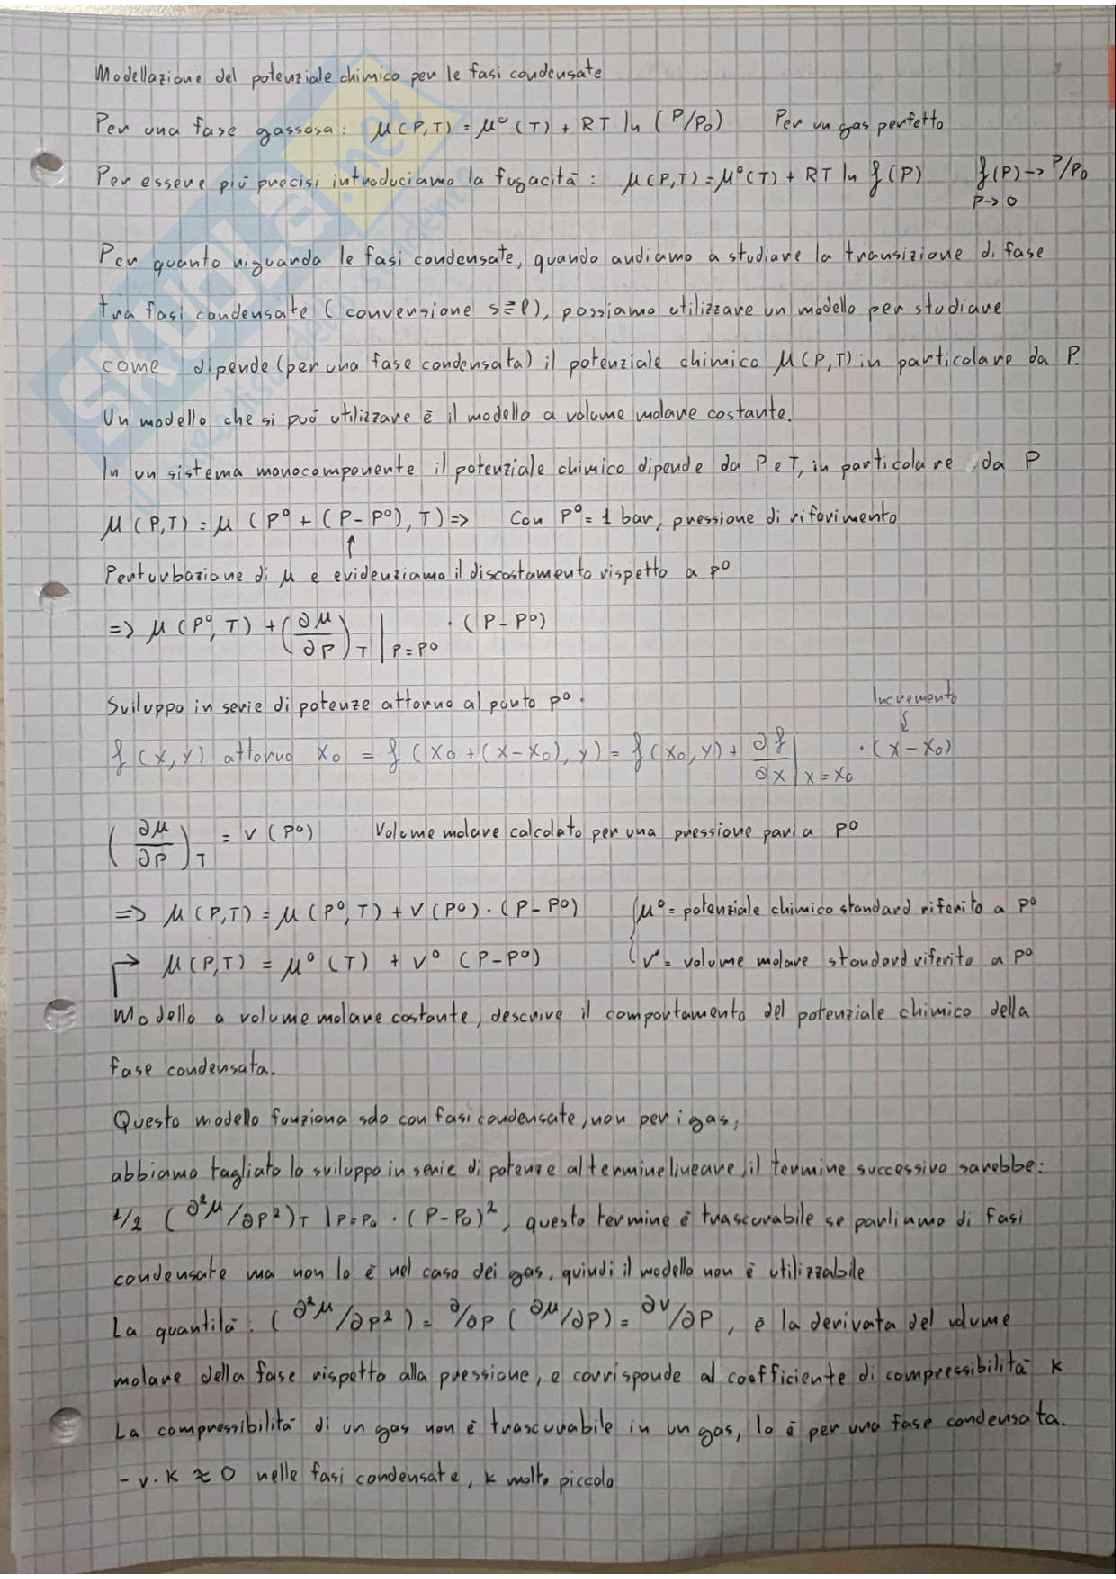 Modellazione del potenziale chimico per le fasi condensate
Per una fase gassosa: μ(P,T) = μ°(T) + RT ln (P/P₀) Per un gas perfetto
Per essere più precisi introduciamo la fugacità: μ(P,T) = μ°(T) + RT ln f(P) f(P) → P/P₀
P→0
Per quanto riguarda le fasi condensate, quando andiamo a studiare la transizione di fase
tra fasi condensate (conversione s⇌l), possiamo utilizzare un modello per studiare
come dipende (per una fase condensata) il potenziale chimico μ(P,T) in particolare da P.
Un modello che si può utilizzare è il modello a volume molare costante.
In un sistema monocomponente il potenziale chimico dipende da P e T, in particolare da P
μ(P,T) = μ (P° + (P-P°), T) => Con P° = 1 bar, pressione di riferimento
↑
Perturbazione di μ e evidenziamo il discostamento rispetto a P°
=> μ(P°,T) + (∂μ/∂P)_T |_P=P° · (P-P°)
Sviluppo in serie di potenze attorno al punto P°.
Incremento
f(x,y) attorno x₀ = f(x₀+(x-x₀),y) = f(x₀,y) + ∂f/∂x |_x=x₀ · (x-x₀)
(∂μ/∂P)_T = v(P°) Volume molare calcolato per una pressione pari a P°
=> μ(P,T) = μ(P°,T) + v(P°)·(P-P°) μ° = potenziale chimico standard riferito a P°
μ(P,T) = μ°(T) + v° (P-P°) v° = volume molare standard riferito a P°
Modello a volume molare costante, descrive il comportamento del potenziale chimico della
fase condensata.
Questo modello funziona solo con fasi condensate, non per i gas,
abbiamo tagliato lo sviluppo in serie di potenze al termine lineare, il termine successivo sarebbe:
1/2 (∂²μ/∂P²)_T |_P=P₀ · (P-P₀)², questo termine è trascurabile se parliamo di fasi
condensate ma non lo è nel caso dei gas, quindi il modello non è utilizzabile
La quantità: (∂²μ/∂P²) = ∂/∂P (∂μ/∂P) = ∂v/∂P, è la derivata del volume
molare della fase rispetto alla pressione, e corrisponde al coefficiente di compressibilità k
La compressibilità di un gas non è trascurabile in un gas, lo è per una fase condensata.
-v·k ≈ 0 nelle fasi condensate, k molto piccolo
SKUOLA.net